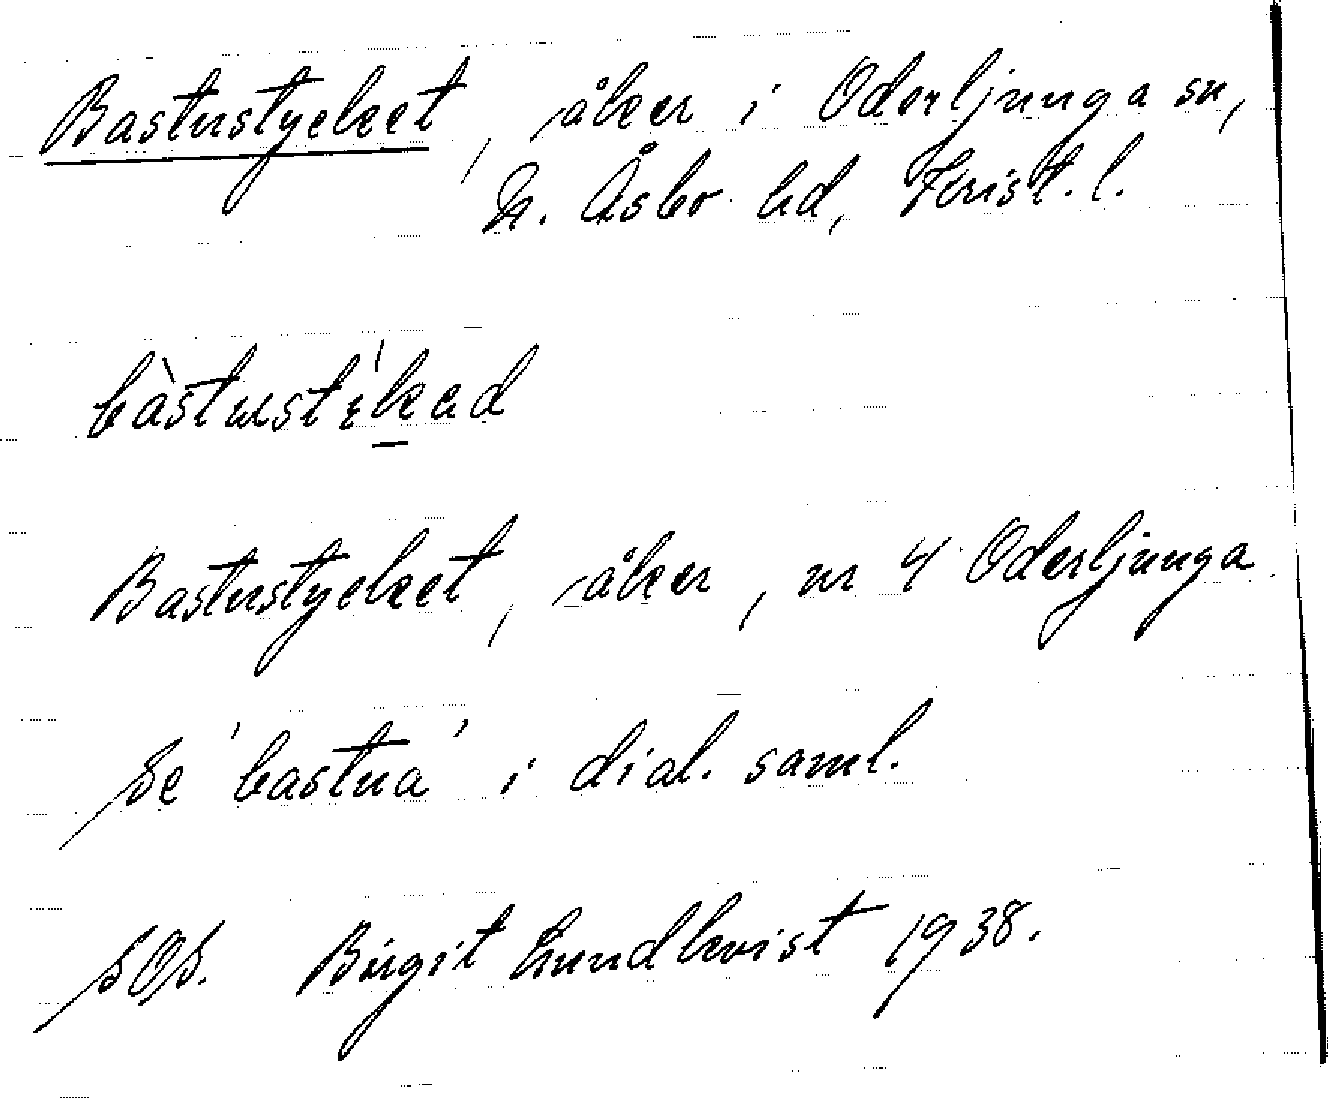 Bastustycket, åker i Oderljunga sn,
N. Åsbo hd, Krist. l.
bàstustí̵ked
Bastustycket, åker, nr 4 Oderljunga
Se 'bastua' i dial. saml.
SOS. Birgit Lundkvist 1938.